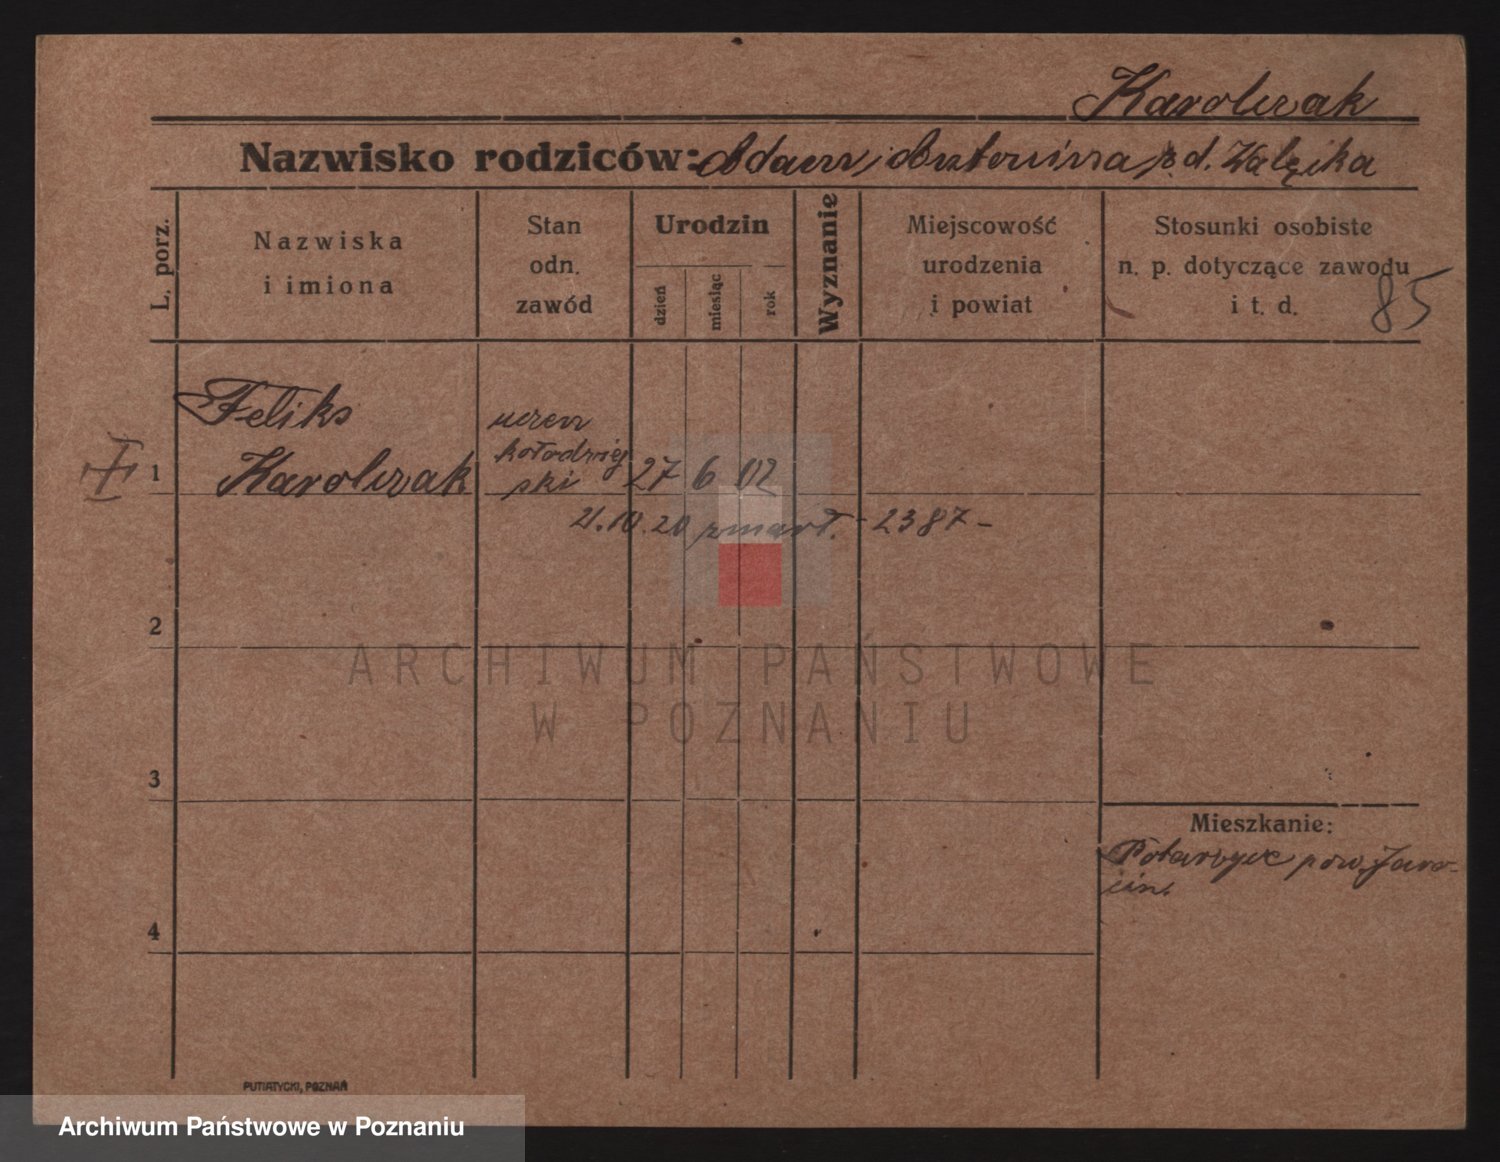 Karolczak
Nazwisko rodziców: Adam, Antonina, z d.
L. porz.
Nazwiska
i imiona
Stan
odn.
zawód
Urodzin
dzień
miesiąc
rok
Wyznanie
Miejscowość
urodzenia
i powiat
Stosunki osobiste
n. p. dotyczące zawodu
i t. d.
85
Feliks
1 Karolczak
uczen
kołodziej
ski
27 6 02
21.10.20 zmarł. - 2387 -
2
3
4
Mieszkanie:
Potarzyce pow. Jaro-
cin.
PUTIATYCKI, POZNAŃ
ARCHIWUM PAŃSTWOWE
W POZNANIU
Archiwum Państwowe w Poznaniu